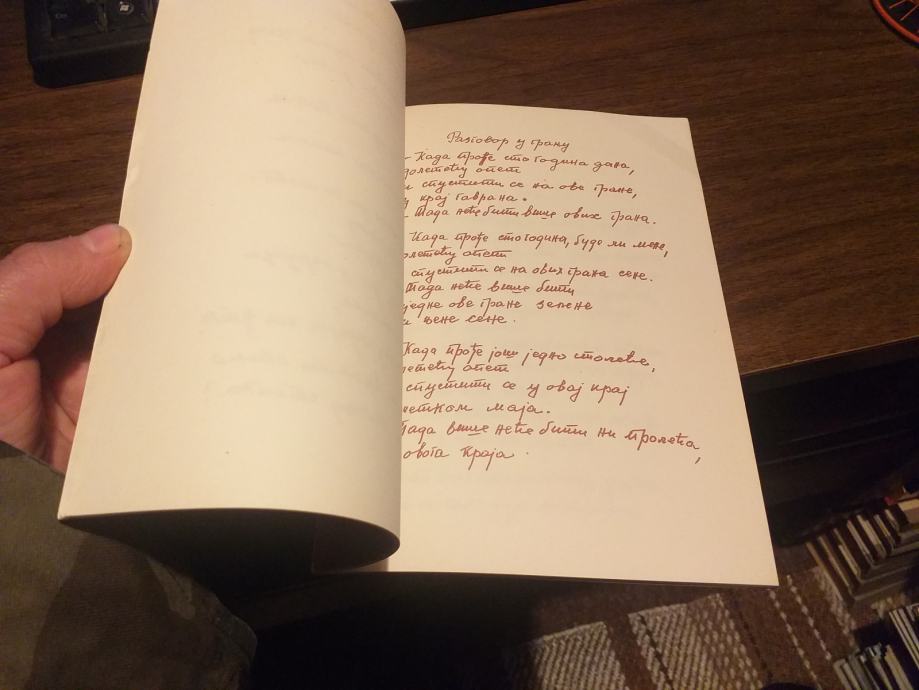 Разговор у грану
- Када прође сто година дана,
долетећу опет
и спустити се на ове гране,
у крај гаврана.
- Тада неће бити више ових грана.
Када прође сто година, буде ли мене,
олетећу опет
спустити се на ових грана сене.
Тада неће више бити
једне ове гране зелене
и њене сене.
Када прође још једно столеће,
летећу опет
спустити се у овај крај
четком маја.
Тада више неће бити ни пролећа,
овога краја.